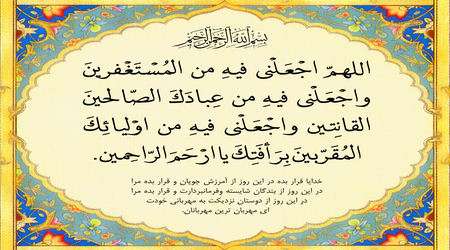 بسم الله الرحمن الرحیم
اللهمّ اجْعَلْنی فیهِ من المُسْتَغْفرینَ
واجْعَلْنی فیهِ من عِبادَكَ الصّالحینَ
القانِتین واجْعَلْنی فیهِ من اوْلیائِكَ
المُقَرّبینَ بِرَأفَتِكَ یا ارْحَمَ الرّاحِمین.
خدایا قرار بده در این روز از آمرزش جویان و قرار بده مرا
در این روز از بندگان شایسته وفرمانبردارت و قرار بده مرا
در این روز از دوستان نزدیکت به مهربانی خودت
ای مهربان ترین مهربانان.